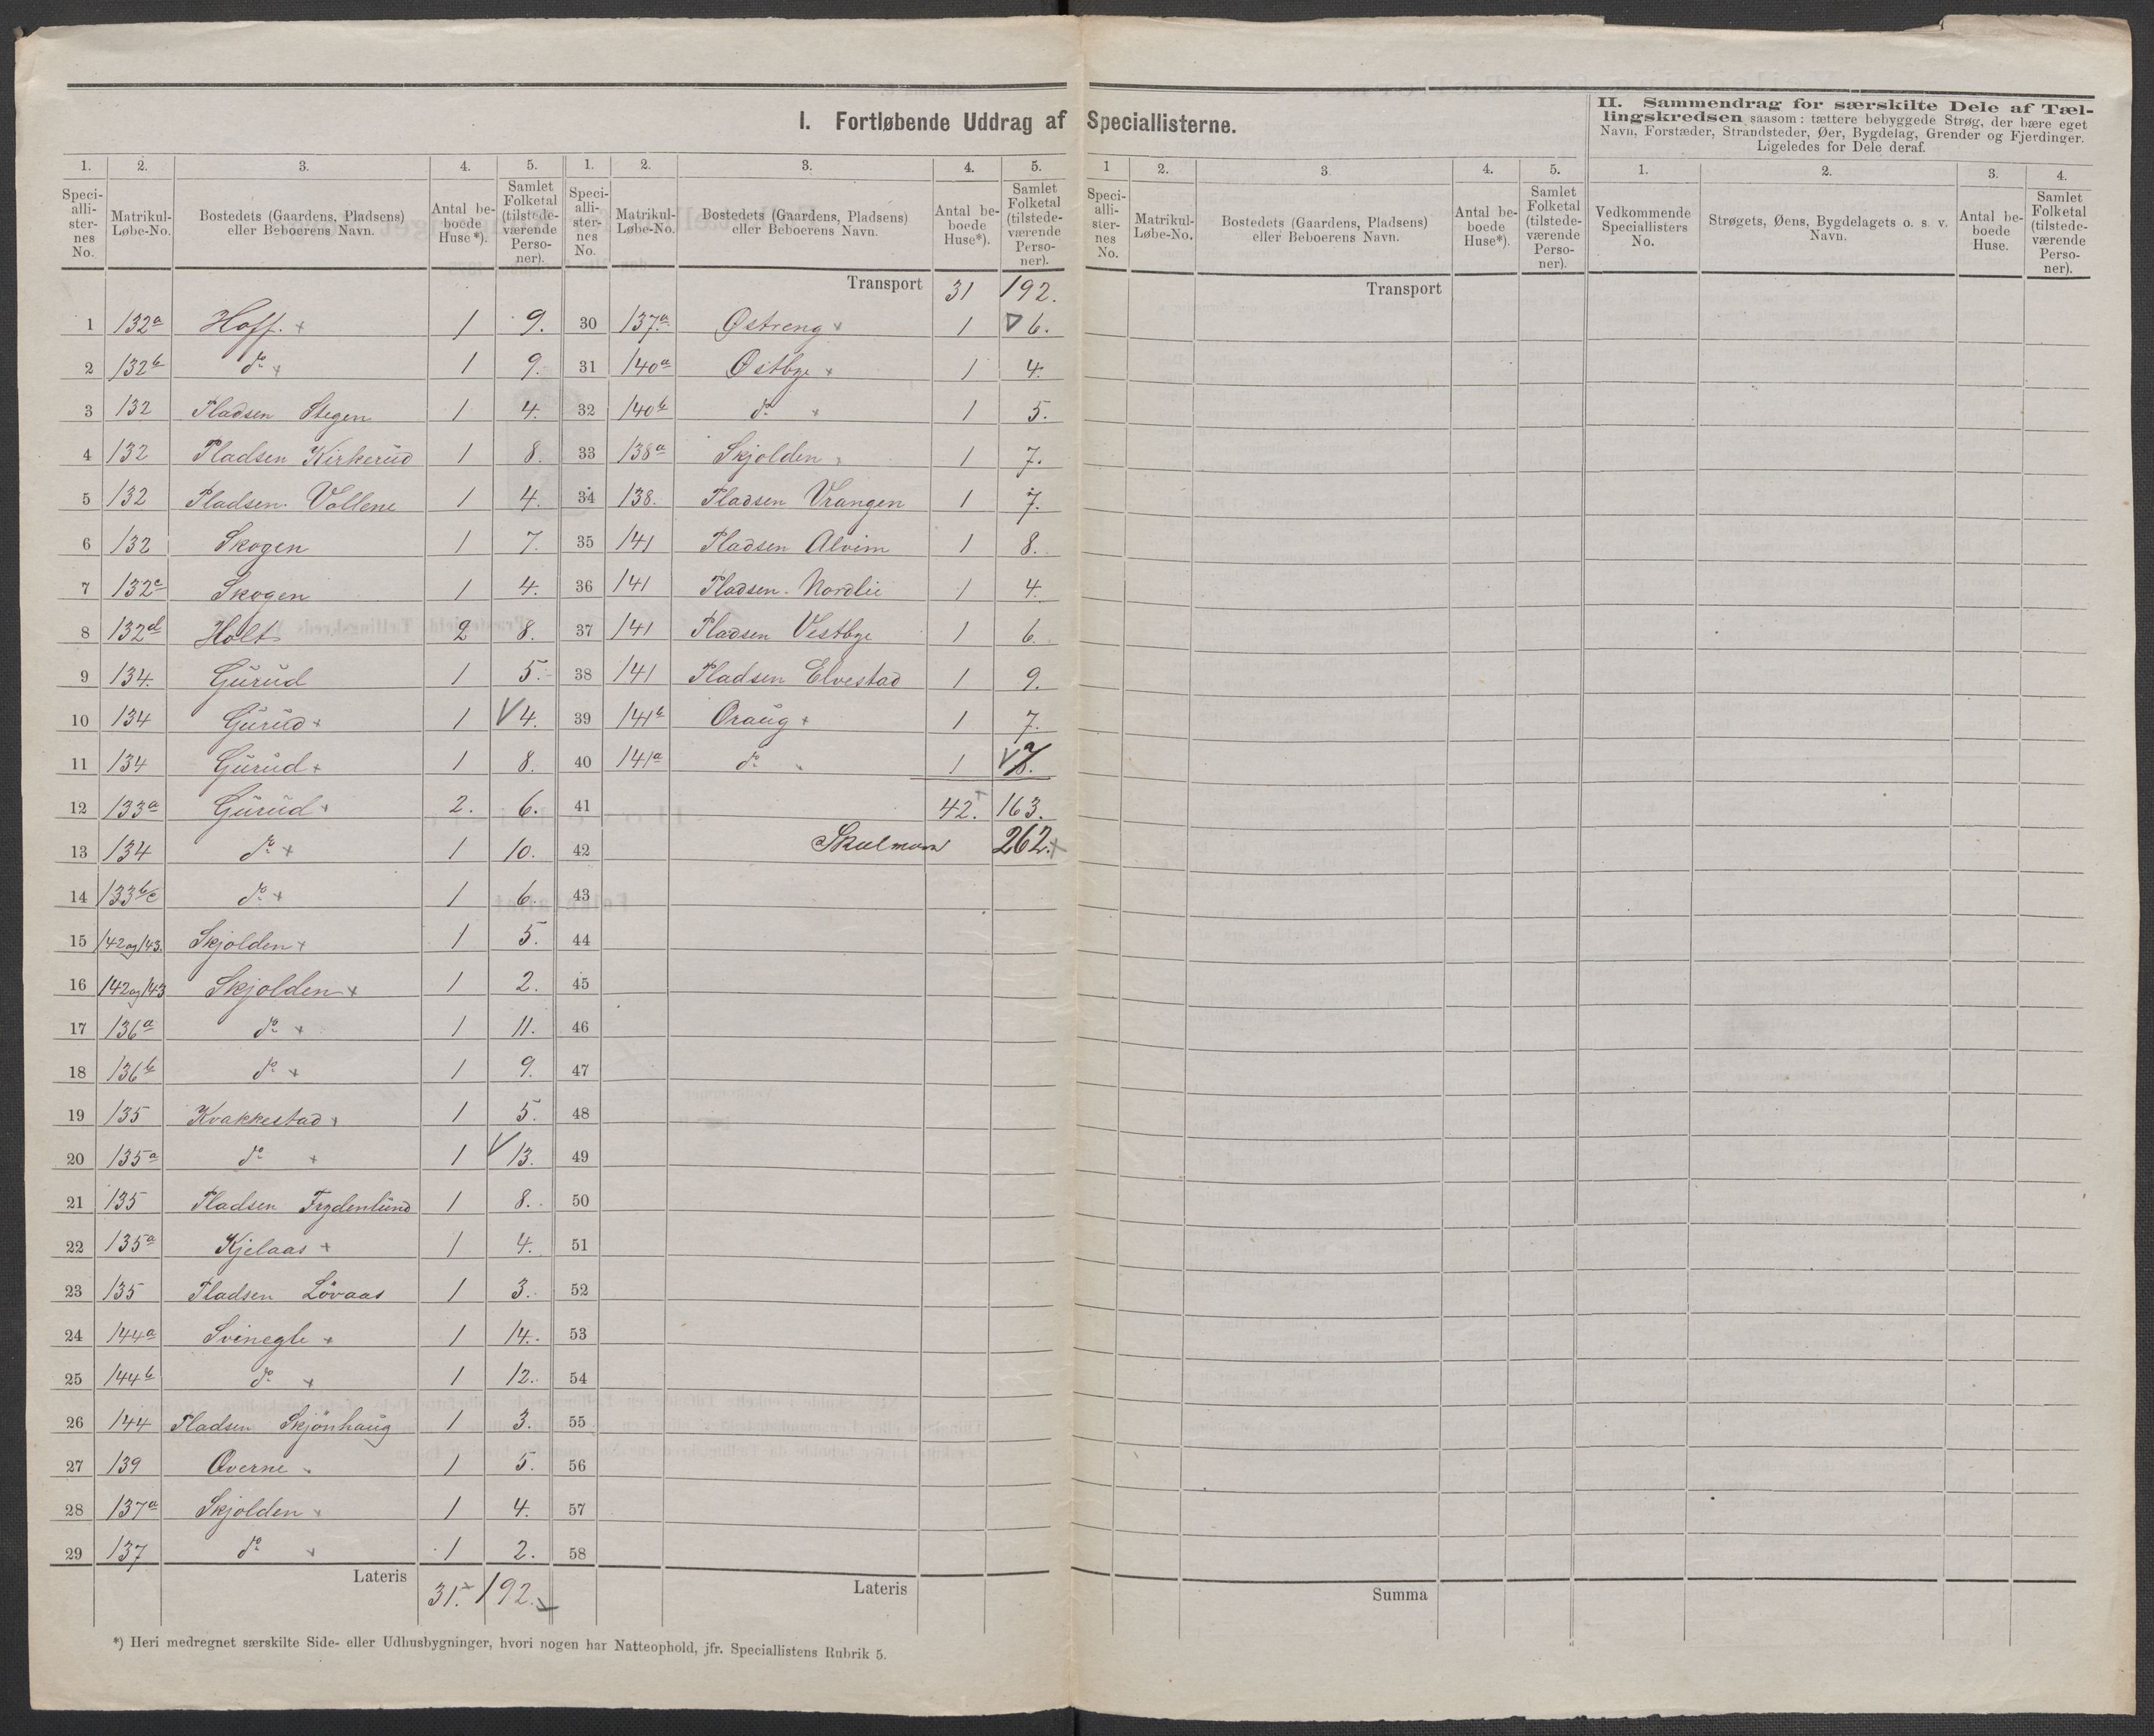 I. Fortløbende Uddrag af Speciallisterne.
II. Sammendrag for særskilte Dele af Tæl-
lingskredsen saasom: tættere bebyggede Strøg, der bære eget
Navn, Forstæder, Strandsteder, Øer, Bygdelag, Grender og Fjerdinger.
Ligeledes for Dele deraf.
1. 2. 3. 4. 5. 1. 2. 3. 4. 5. 1 2. 3. 4. 5. 1. 2. 3. 4.
Speci-
alli-
ster-
nes
No.
Matrikul-
Løbe-No.
Bostedets (Gaardens, Pladsens)
eller Beboerens Navn.
Antal be-
boede
Huse*).
Samlet
Folketal
(tilstede-
værende
Perso-
ner).
Speci-
alli-
ster-
nes
No.
Matrikul-
Løbe-No.
Bostedets (Gaardens, Pladsens)
eller Beboerens Navn.
Antal be-
boede
Huse*).
Samlet
Folketal
(tilstede-
værende
Perso-
ner).
Speci-
alli-
ster-
nes
No.
Matrikul-
Løbe-No.
Bostedets (Gaardens, Pladsens)
eller Beboerens Navn.
Antal be-
boede
Huse*).
Samlet
Folketal
(tilstede-
værende
Perso-
ner).
Vedkommende
Speciallisters
No.
Strøgets, Øens, Bygdelagets o. s. v.
Navn.
Antal be-
boede
Huse.
Samlet
Folketal
(tilstede-
værende
Perso-
ner).
1 132a Hoff. + 1 9.
2 132b do + 1 9.
3 132 Pladsen Stegen 1 4.
4 132 Pladsen Kirkerud 1 8.
5 132 Pladsen Vollene 1 4.
6 132 Skogen 1 7.
7 132c Skogen 1 4.
8 132d Holt 2 8.
9 134. Gurud 1 5.
10 134 Gurud + 1 V 4.
11 134 Gurud + 1 8.
12 133a Gurud + 2. 6.
13 134 do + 1 10.
14 133b/c do + 1 6.
15 142 og 143. Skjolden + 1 5.
16 142 og 143 Skjolden + 1 2.
17 136a do + 1 11.
18 136b do + 1 9.
19 135 Kvakkestad + 1 5.
20 135a do + 1 V 13.
21 135 Pladsen Frydenlund 1 8.
22 135a Kjelaas + 1 4.
23 135 Pladsen Lövaas 1 3.
24 144a Svinegle + 1 14.
25 144b do + 1 12.
26 144 Pladsen Skjönhaug 1 3.
27 139 Överne 1 5.
28 137a Skjolden 1 4.
29 137 do 1 2.
Lateris 31. 192.
Transport 31 192.
30 137a Østreng 1 6.
31 140a Østbye + 1 4.
32 140b do + 1 5.
33 138a Skjolden 1 7.
34 138. Pladsen Vrangen 1 7.
35 141 Pladsen Alvim 1 8.
36 141 Pladsen Nordlie 1 4.
37 141 Pladsen Vestbye 1 6.
38 141 Pladsen Elvestad 1 9.
39 141b Oraug + 1 7.
40 141a do 1 V
41 42. 163.
42 262.
43
44
45
46
47
48
49
50
51
52
53
54
55
56
57
58
Lateris
Transport
Summa
*) Heri medregnet særskilte Side- eller Udhusbygninger, hvori nogen har Natteophold, jfr. Speciallistens Rubrik 5.